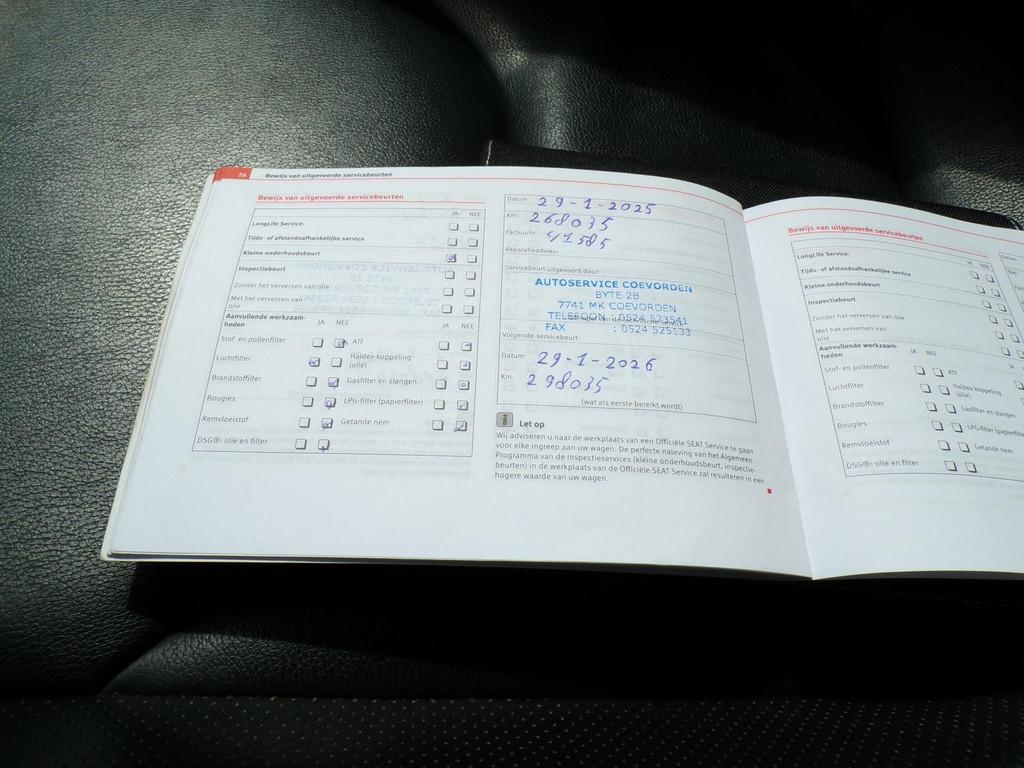 26 Bewijs van uitgevoerde servicebeurten
Bewijs van uitgevoerde servicebeurten
JA NEE
LongLife Service:
Tijds- of afstandsafhankelijke service
Kleine onderhoudsbeurt
Inspectiebeurt
Zonder het verversen van olie
Met het verversen van
olie
Aanvullende werkzaam-
heden JA NEE JA NEE
Stof- en pollenfilter ATF
Luchtfilter Haldex-koppeling
(olie)
Brandstoffilter Gasfilter en slangen
Bougies LPG-filter (papierfilter)
Remvloeistof Getande riem
DSG®: olie en filter
Datum: 29-1-2025
Km: 268035
Factuurnr.: 41585
Reparatieadvies:
Servicebeurt uitgevoerd door:
AUTOSERVICE COEVORDEN
BYTE 2B
7741 MK COEVORDEN
TELEFOON : 0524 523541
FAX : 0524 525133
Volgende servicebeurt:
Datum: 29-1-2026
Km: 298035
(wat als eerste bereikt wordt)
Let op
Wij adviseren u naar de werkplaats van een Officiële SEAT Service te gaan
voor elke ingreep aan uw wagen. De perfecte naleving van het Algemeen
Programma van de Inspectieservices (kleine onderhoudsbeurt, inspectie-
beurten) in de werkplaats van de Officiële SEAT Service zal resulteren in een
hogere waarde van uw wagen.
Bewijs van uitgevoerde servicebeurten
JA NEE
LongLife Service:
Tijds- of afstandsafhankelijke service
Kleine onderhoudsbeurt
Inspectiebeurt
Zonder het verversen van olie
Met het verversen van
olie
Aanvullende werkzaam-
heden JA NEE JA
Stof- en pollenfilter ATF
Luchtfilter Haldex-koppeling
(olie)
Brandstoffilter Gasfilter en slangen
Bougies LPG-filter (papierfilter)
Remvloeistof Getande riem
DSG®: olie en filter